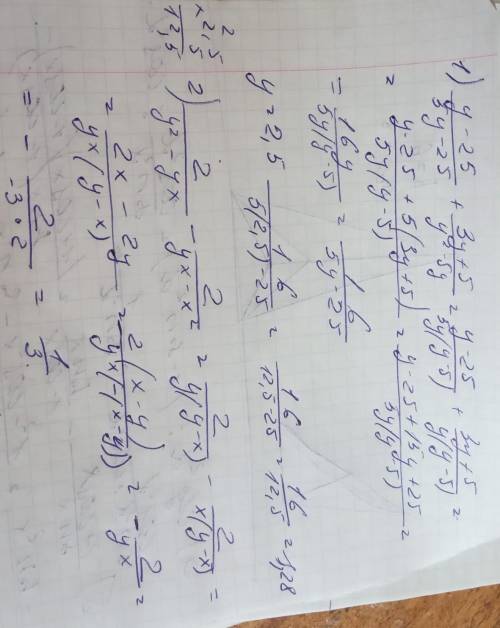 1) (y-25)/(5y-25) + (3y+5)/(y²-5y) = (y-25)/(5(y-5)) + (3y+5)/(y(y-5)) =
= (y-25+5(3y+5))/(5y(y-5)) = (y-25+15y+25)/(5y(y-5)) =
= 16y/(5y(y-5)) = 16/(5y-25)
y=2,5 16/(5(2,5)-25) = 16/(12,5-25) = 16/12,5 = 1,28
2,5
x 5
12,5
2) 2/(y²-yx) - 2/(yx-x²) = 2/(y(y-x)) - 2/(x(y-x)) =
= (2x-2y)/(yx(y-x)) = 2(x-y)/(yx(-(x-y))) = -2/yx =
= - 2/(-3·2) = 1/3.